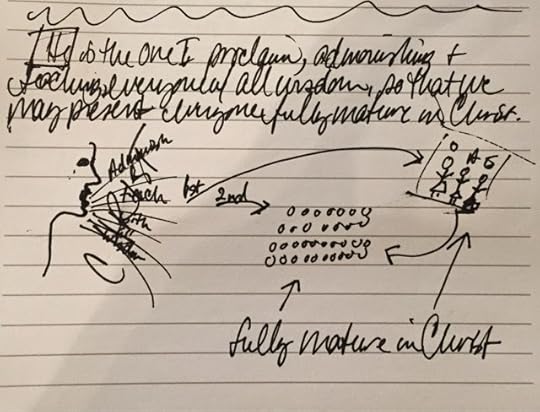 He is the one I proclaim, admonishing +
teaching everyone w/ all wisdom, so that we
may present everyone fully mature in Christ.
Admonish
Teach
1st
2nd
fully mature in Christ